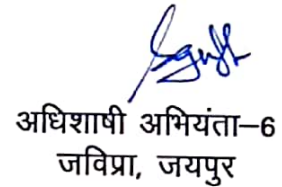 अधिशाषी अभियंता–6
जविप्रा, जयपुर